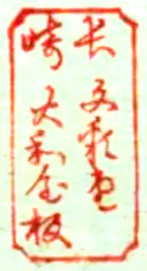 長崎
文彩堂
大和屋板